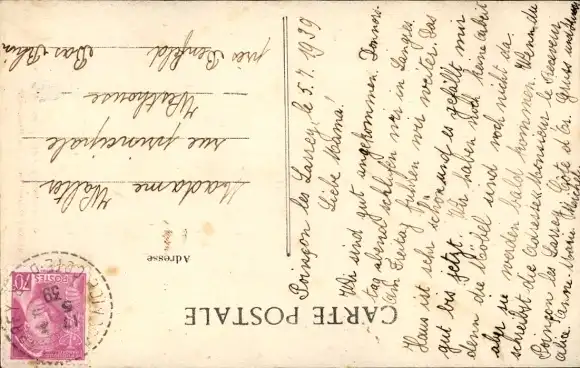 CARTE POSTALE
Poinçon les Larrey, le 5.7.1939
Liebe Mama!
Wir sind gut angekommen. Donners-
tag abend schliefen wir in Langres.
Am Freitag fuhren wir weiter. Das
Haus ist sehr schön und es gefällt mir
gut bis jetzt. Wir haben noch keine Arbeit
denn die Möbel sind noch nicht da.
aber sie werden bald kommen. Wenn du
schreibst die Adresse: Monsieur le Receveur
Poinçon les Larrey Côte d'Or. Gruss und Kuss
Anne Marie
Adresse
Madame Walter
rue principale
Westhouse
près Benfeld Bas Rhin
POSTES
70